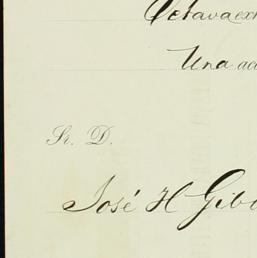 Octava ex
Una ac
Sr. D.
José H Gib